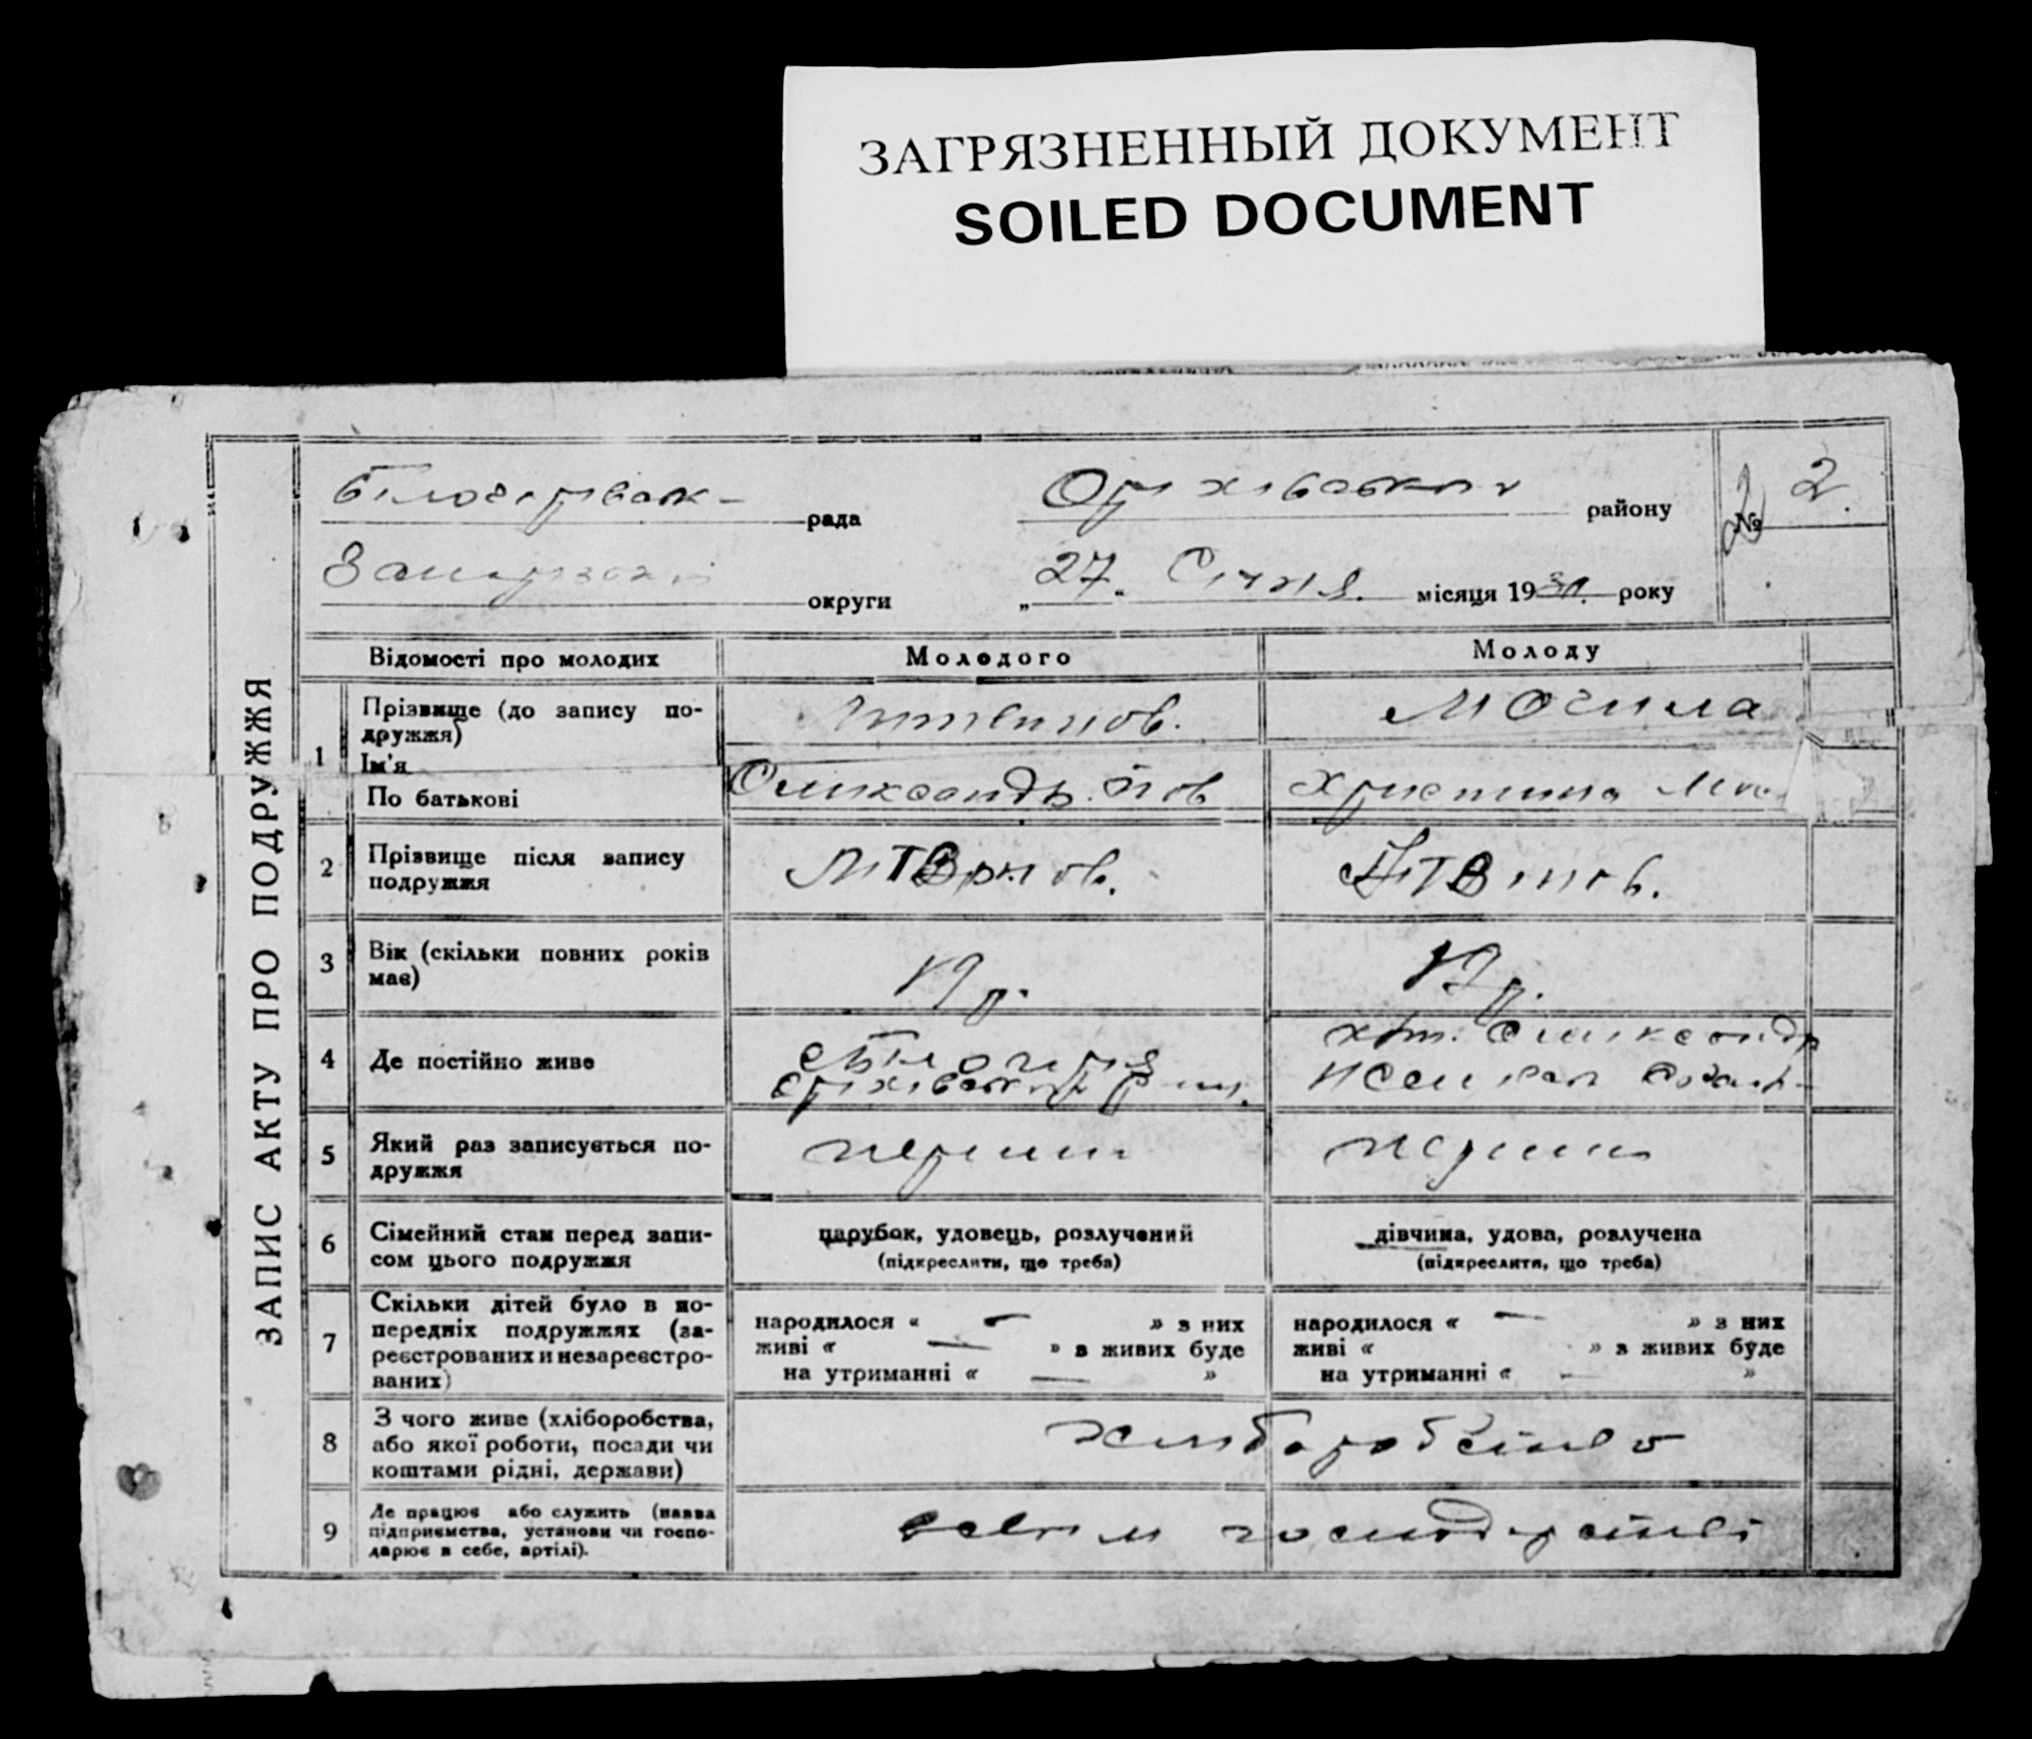 ЗАГРЯЗНЕННЫЙ ДОКУМЕНТ
SOILED DOCUMENT
рада Оріхівськ району № 2.
округи „27“ Січня. місяця 19 року
ЗАПИС АКТУ ПРО ПОДРУЖЖЯ
Відомості про молодих Молодого Молоду
1 Прізвище (до запису по-
дружжя) Литвинов. Могила
Ім'я
По батькові Олександр Христина
2 Прізвище після запису
подружжя Литвинов. Литвинов.
3 Вік (скільки повних років
має) 19 р. 19 р.
4 Де постійно живе
5 Який раз записується по-
дружжя перший перший
6 Сімейний стан перед запи-
сом цього подружжя
парубок, удовець, розлучений
(підкреслити, що треба)
дівчина, удова, розлучена
(підкреслити, що треба)
7 Скільки дітей було в по-
передніх подружжях (за-
реєстрованих и незареєстро-
ваних)
народилося « — » з них
живі « — » з живих буде
на утриманні « — »
народилося « — » з них
живі « » з живих буде
на утриманні « — »
8 З чого живе (хліборобства,
або якої роботи, посади чи
коштами рідні, держави)
хліборобство
9 Де працює або служить (назва
підприємства, установи чи госпо-
дарює в себе, артілі).
господарстві